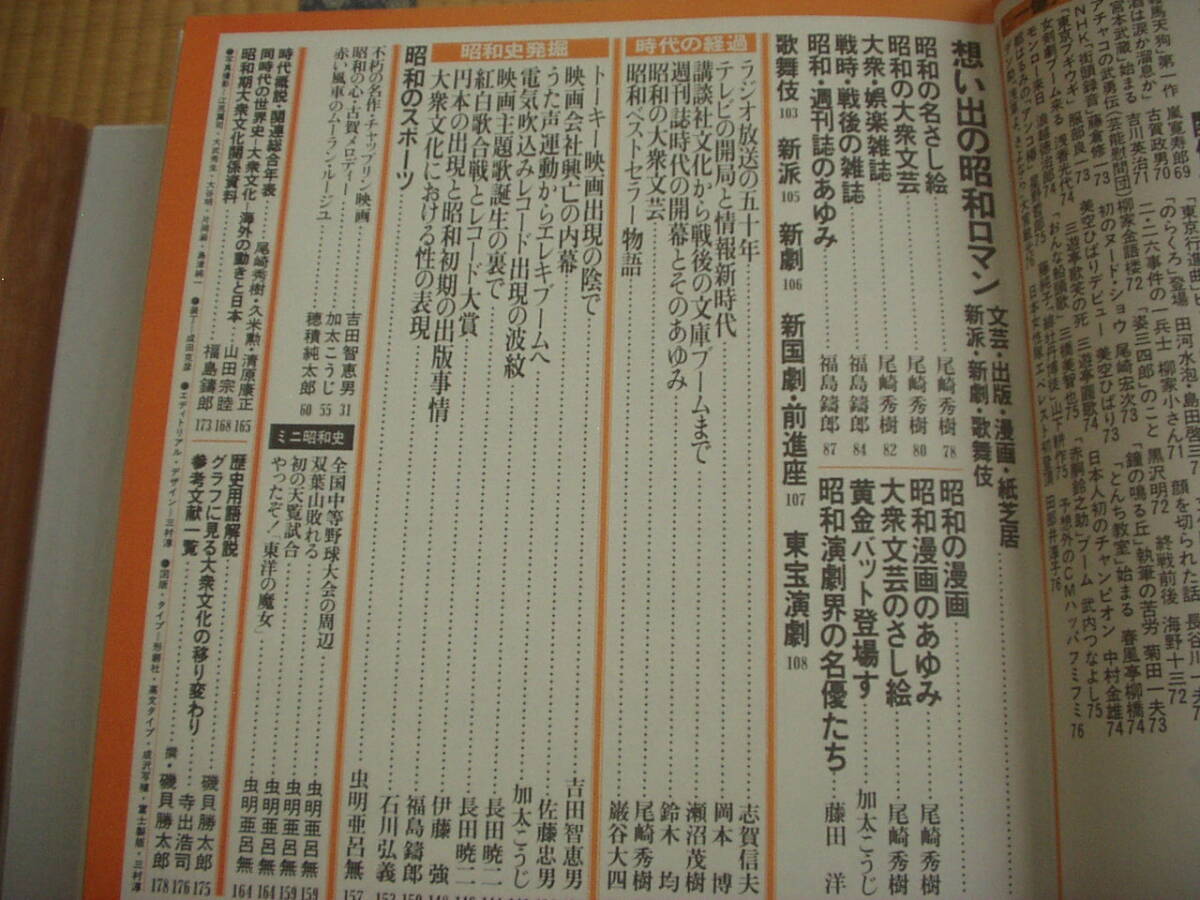 鞍馬天狗」第一作 嵐寛寿郎69
酒は涙か溜息か」 古賀政男70
宮本武蔵」始まる 吉川英治71
アチャコの武勇伝(芸能慰問団)
NHK「街頭録音」藤倉修一73
「東京ブギウギ」 服部良一73
女剣劇ブーム来る 浅香光代74
モンロー来日 浪越徳治郎74
「東京行進曲」
「のらくろ」登場 田河水泡・島田啓三
二・二六事件の一兵士 柳家小さん71
柳家金語楼72 「姿三四郎」のこと 黒沢明72
初のヌード・ショウ 尾崎宏次73
美空ひばりデビュー 美空ひばり73
三遊亭歌笑の死 三遊亭圓歌74
「おんな船頭歌」 三橋美智也75
顔を切られた話 長谷川
終戦前後 海野十三72
「鐘の鳴る丘」執筆の苦労 菊田一夫73
「とんち教室」始まる 春風亭柳橋74
日本人初のチャンピオン 中村金雄74
「赤胴鈴之助」ブーム 武内つなよし75
予想外のCMハッパフミフミ76
想い出の昭和ロマン
文芸・出版・漫画・紙芝居
新派・新劇・歌舞伎
昭和の名さし絵 尾崎秀樹 78
昭和の大衆文芸 尾崎秀樹 80
大衆・娯楽雑誌 尾崎秀樹 82
戦時・戦後の雑誌 福島鑄郎 84
昭和・週刊誌のあゆみ 福島鑄郎 87
昭和の漫画 尾崎秀樹
昭和漫画のあゆみ 尾崎秀樹
大衆文芸のさし絵 尾崎秀樹
黄金バット登場す 加太こうじ
昭和演劇界の名優たち 藤田 洋
歌舞伎 103 新派 105 新劇 106 新国劇・前進座 107 東宝演劇 108
時代の経過
ラジオ放送の五十年 志賀信夫
テレビの開局と情報新時代 岡本 博
講談社文化から戦後の文庫ブームまで 瀬沼茂樹
週刊誌時代の開幕とそのあゆみ 鈴木 均
昭和の大衆文芸 尾崎秀樹
昭和ベストセラー物語 巌谷大四
昭和史発掘
トーキー映画出現の陰で 吉田智恵男
映画会社興亡の内幕 佐藤忠男
うた声運動からエレキブームへ 加太こうじ
電気吹込みレコード出現の波紋 長田暁二
映画主題歌誕生の裏で 長田暁二
紅白歌合戦とレコード大賞 伊藤 強
円本の出現と昭和初期の出版事情 福島鑄郎
大衆文化における性の表現 石川弘義
昭和のスポーツ 虫明亜呂無 157
不朽の名作・チャップリン映画 吉田智恵男 31
昭和の心・古賀メロディー 加太こうじ 55
赤い風車のムーラン・ルージュ 穂積純太郎 60
ミニ昭和史
全国中等野球大会の周辺 虫明亜呂無 159
双葉山敗れる 虫明亜呂無 159
初の天覧試合 虫明亜呂無 164
やったぞ!「東洋の魔女」 虫明亜呂無 164
時代概説・関連総合年表 尾崎秀樹・久米勲・清原康正 165
同時代の世界史・大衆文化―海外の動きと日本 山田宗睦 168
昭和期大衆文化関係資料 福島鑄郎 173
歴史用語解説 磯貝勝太郎 175
グラフに見る大衆文化の移り変わり 寺出浩司 176
参考文献一覧 撰・磯貝勝太郎 178
●エディトリアル・デザイン―三村淳